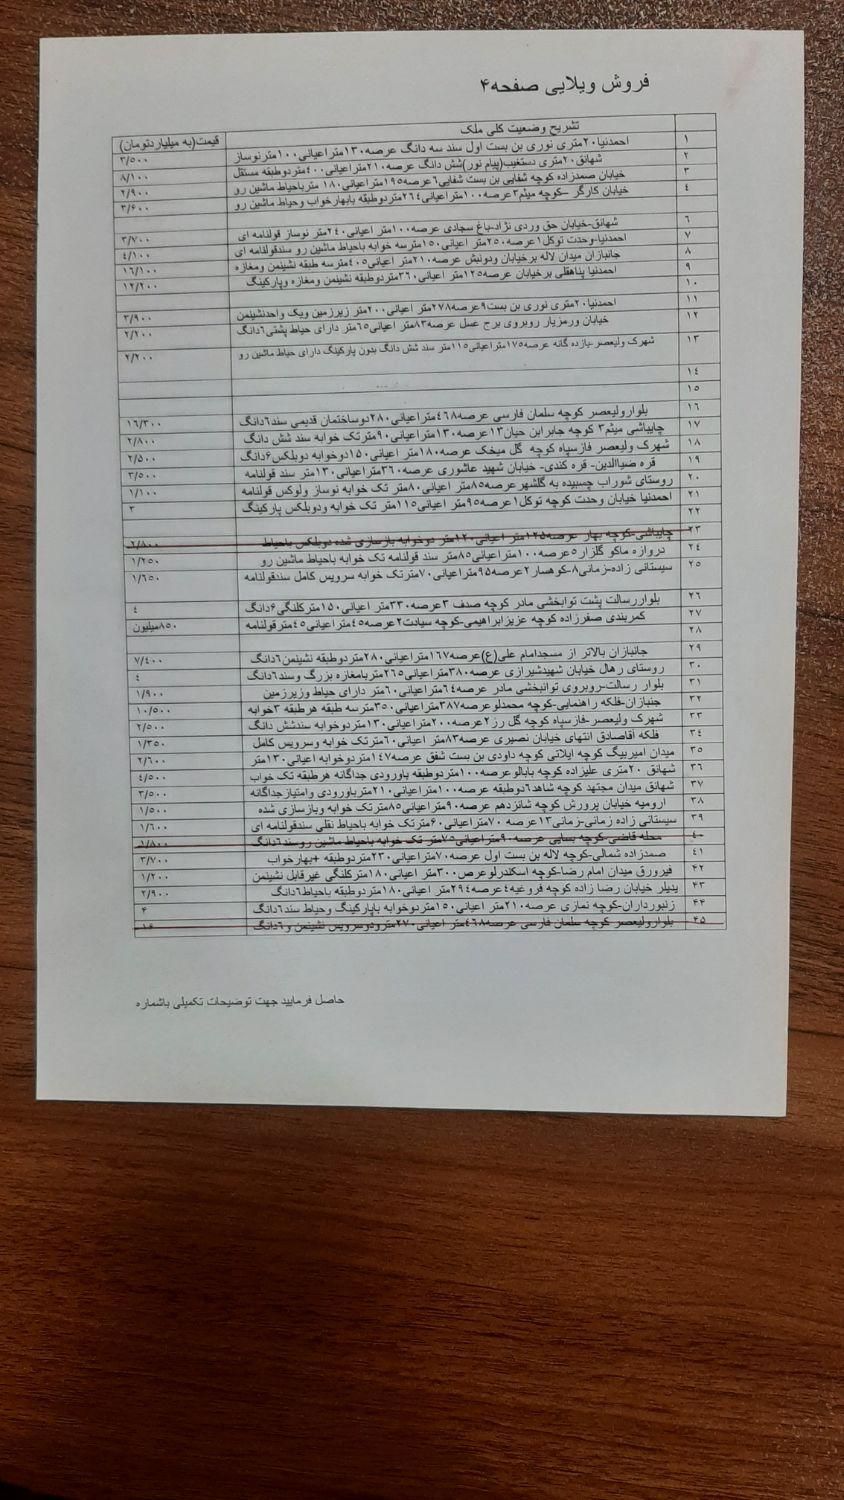 فروش ویلایی صفحه۴
تشریح وضعیت کلی ملک قیمت(به میلیاردتومان)
۱ احمدنیا۲۰متری نوری بن بست اول سند سه دانگ عرصه۱۳۰متراعیانی۱۰۰مترنوساز ۳/۵۰۰
۲ شهانق۲۰متری دستغیب(پیام نور)شش دانگ عرصه۲۱۰متراعیانی۴۰۰متردوطبقه مستقل ۸/۱۰۰
۳ خیابان صمدزاده کوچه شفایی بن بست شفایی۶عرصه۱۹۵متراعیانی۱۸۰ مترباحیاط ماشین رو ۲/۹۰۰
۴ خیابان کارگر –کوچه میثم۳عرصه۱۰۰متراعیانی۲۶۴متردوطبقه بابهارخواب وحیاط ماشین رو ۳/۶۰۰
۶ شهانق-خیابان حق وردی نژاد-باغ سجادی عرصه۱۰۰متر اعیانی۲۴۰متر نوساز قولنامه ای ۳/۷۰۰
۷ احمدنیا-وحدت توکل۱عرصه۲۵۰متر اعیانی۱۵۰مترسه خوابه باحیاط ماشین رو سندقولنامه ای ۴/۱۰۰
۸ جانبازان میدان لاله برخیابان ودونبش عرصه۲۱۰متر اعیانی۴۰۵مترسه طبقه نشیمن ومغازه ۱۶/۱۰۰
۹ احمدنیا پناهقلی برخیابان عرصه۱۲۵متر اعیانی۳۶۰متردوطبقه نشیمن ومغازه وپارکینگ ۱۲/۲۰۰
۱۰
۱۱ احمدنیا۲۰متری نوری بن بست۹عرصه۲۷۸متر اعیانی۲۰۰متر زیرزمین ویک واحدنشیمن ۳/۹۰۰
۱۲ خیابان ورمزیار روبروی برج عسل عرصه۸۳متر اعیانی۶۵متر دارای حیاط پشتی۶دانگ ۲/۲۰۰
۱۳ شهرک ولیعصر-یازده گانه عرصه۱۷۵متراعیانی۱۱۵متر سند شش دانگ بدون پارکینگ دارای حیاط ماشین رو ۲/۲۰۰
۱۴
۱۵
۱۶ بلوارولیعصر کوچه سلمان فارسی عرصه۴۶۸متراعیانی۲۸۰دوساختمان قدیمی سند۶دانگ ۱۶/۳۰۰
۱۷ چایباشی میثم۳ کوچه جابرابن حیان۱۳عرصه۱۳۰متراعیانی۹۰مترتک خوابه سند شش دانگ ۲/۸۰۰
۱۸ شهرک ولیعصر فازسپاه کوچه گل میخک عرصه۱۸۰متر اعیانی۱۵۰دوخوابه دوبلکس۶دانگ ۲/۵۰۰
۱۹ قره ضیاالدین- قره کندی- خیابان شهید عاشوری عرصه۳۶۰متراعیانی۱۳۰متر سند قولنامه ۳/۵۰۰
۲۰ روستای شوراب چسبیده به گلشهرعرصه۸۵متر اعیانی۸۰متر تک خوابه نوساز ولوکس قولنامه ۱/۱۰۰
۲۱ احمدنیا خیابان وحدت کوچه توکل۱عرصه۹۵متر اعیانی۱۱۵متر تک خوابه ودوبلکس پارکینگ ۳
۲۲
۲۳ چایباشی-کوچه بهار عرصه۱۲۵متر اعیانی۱۲۰متر دوخوابه بازسازی شده دوبلکس باحیاط ۲/۸۰۰
۲۴ دروازه ماکو گلزار۵عرصه۱۰۰متراعیانی۸۵متر سند قولنامه تک خوابه باحیاط ماشین رو ۱/۲۵۰
۲۵ سیستانی زاده-زمانی۸-کوهسار۲عرصه۹۵متراعیانی۷۰مترتک خوابه سرویس کامل سندقولنامه ۱/۶۵۰
۲۶ بلواررسالت پشت توانبخشی مادر کوچه صدف ۳عرصه۳۳۰متر اعیانی۱۵۰مترکلنگی۶دانگ ۴
۲۷ کمربندی صفرزاده کوچه عزیزابراهیمی-کوچه سیادت۲عرصه۴۵متراعیانی۴۵مترقولنامه ۸۵۰میلیون
۲۸
۲۹ جانبازان بالاتر از مسجدامام علی(ع)عرصه۱۶۷متراعیانی۲۸۰متردوطبقه نشیمن۶دانگ ۷/۴۰۰
۳۰ روستای رهال خیابان شهیدشیرازی عرصه۳۸۰متراعیانی۲۶۵متربامغازه بزرگ وسند۶دانگ ۴
۳۱ بلوار رسالت-روبروی توانبخشی مادر عرصه۶۴متراعیانی۶۰متر دارای حیاط وزیرزمین ۱/۹۰۰
۳۲ جنبازان-فلکه راهنمایی-کوچه محمدلوعرصه۳۸۷متراعیانی۳۵۰مترسه طبقه هرطبقه ۳خوابه ۱۰/۵۰۰
۳۳ شهرک ولیعصر-فازسپاه کوچه گل رز۲عرصه۲۰۰متراعیانی۱۳۰متردوخوابه سندشش دانگ ۲/۵۰۰
۳۴ فلکه اقاصادق انتهای خیابان نصیری عرصه۸۳متر اعیانی۶۰مترتک خوابه وسرویس کامل ۱/۳۵۰
۳۵ میدان امیربیگ کوچه ایلاتی کوچه داودی بن بست شفق عرصه۱۴۷متردوخوابه اعیانی۱۳۰متر ۲/۶۰۰
۳۶ شهانق ۲۰متری علیزاده کوچه بابالوعرصه۱۰۰متردوطبقه باورودی جداگانه هرطبقه تک خواب ۴/۵۰۰
۳۷ شهانق میدان مجتهد کوچه شاهد۶دوطبقه عرصه۱۰۰متراعیانی۲۱۰مترباورودی وامتیازجداگانه ۳/۵۰۰
۳۸ ارومیه خیابان پرورش کوچه شانزدهم عرصه۹۰متراعیانی۸۵مترتک خوابه وبازسازی شده ۱/۵۰۰
۳۹ سیستانی زاده زمانی-زمانی۱۳عرصه ۷۰متراعیانی۶۰مترتک خوابه باحیاط نقلی سندقولنامه ای ۱/۶۰۰
۴۰ محله قاضی-کوچه بسایی عرصه۹۰متراعیانی۷۵متر تک خوابه باحیاط ماشین روسند۶دانگ ۱/۸۰۰
۴۱ صمدزاده شمالی-کوچه لاله بن بست اول عرصه۷۰متراعیانی۲۳۰متردوطبقه +بهارخواب ۳/۷۰۰
۴۲ فیرورق میدان امام رضا-کوچه اسکندرلوعرض۳۰۰متر اعیانی۱۸۰مترکلنگی غیرقابل نشیمن ۱/۲۰۰
۴۳ پدیلر خیابان رضا زاده کوچه فروغیه۴عرصه۲۹۴متر اعیانی۱۸۰متردوطبقه باحیاط۶دانگ ۲/۹۰۰
۴۴ زنبورداران-کوچه نمازی عرصه۲۱۰متر اعیانی۱۵۰متردوخوابه باپارکینگ وحیاط سند۶دانگ ۴
۴۵ بلوارولیعصر کوچه سلمان فارسی عرصه۴۶۸متر اعیانی۲۷۰مترودوسرویس نشیمن و۶دانگ ۱۶
حاصل فرمایید جهت توضیحات تکمیلی باشماره